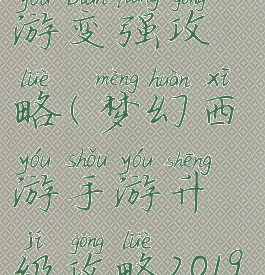 yóu biàn qiáng gōng
游变强攻
lüè mèng huàn xī
略(梦幻西
yóu shǒu yóu shēng
游手游升
jí gōng lüè
级攻略2019